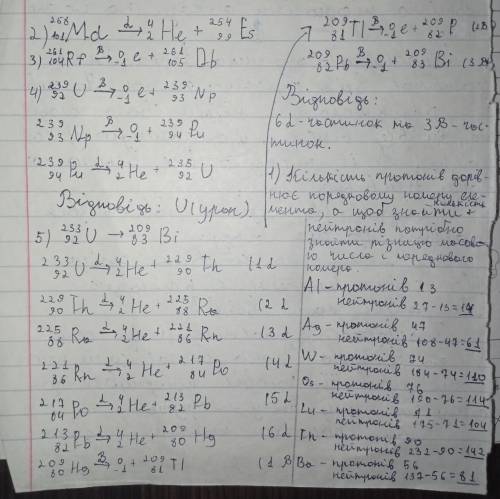 2) ²⁵⁸₁₀₁Md →ᵈ ⁴₂He + ²⁵⁴₉₉Es
3) ²⁶¹₁₀₄Rf →ᴮ ⁰₋₁e + ²⁶¹₁₀₅Db
4) ²³⁹₉₂U →ᴮ ⁰₋₁e + ²³⁹₉₃Np
²³⁹₉₃Np →ᴮ ⁰₋₁ + ²³⁹₉₄Pu
²³⁹₉₄Pu →ᵈ ⁴₂He + ²³⁵₉₂U
Відповідь: U(уран)
5) ²³³₉₂U → ²⁰⁹₈₃Bi
²³³₉₂U →ᵈ ⁴₂He + ²²⁹₉₀Th (1d
²²⁹₉₀Th →ᵈ ⁴₂He + ²²⁵₈₈Ra (2d
²²⁵₈₈Ra →ᵈ ⁴₂He + ²²¹₈₆Rn (3d
²²¹₈₆Rn →ᵈ ⁴₂He + ²¹⁷₈₄Po (4d
²¹⁷₈₄Po →ᵈ ⁴₂He + ²¹³₈₂Pb (5d
²¹³₈₂Pb →ᵈ ⁴₂He + ²⁰⁹₈₀Hg (6d
²⁰⁹₈₀Hg →ᴮ ⁰₋₁ + ²⁰⁹₈₁Tl (1B
²⁰⁹₈₁Tl →ᴮ ⁰₋₁e + ²⁰⁹₈₂P (2B)
²⁰⁹₈₂Pb →ᴮ ⁰₋₁ + ²⁰⁹₈₃Bi (3B)
Відповідь:
6d-частинок та 3B-час-
тинок.
1) Кількість протонів дорів-
нює порядковому номеру еле-
мента, а щоб знайти кількість
нейтронів потрібно
знайти різницю масово-
го числа і порядкового
номера.
Al - протонів 13
нейтронів 27-13=14
Ag - протонів 47
нейтронів 108-47=61
W - протонів 74
нейтронів 184-74=110
Os - протонів 76
нейтронів 190-76=114
Lu - протонів 71
нейтронів 175-71=104
Th - протонів 90
нейтронів 232-90=142
Ba - протонів 56
нейтронів 137-56=81